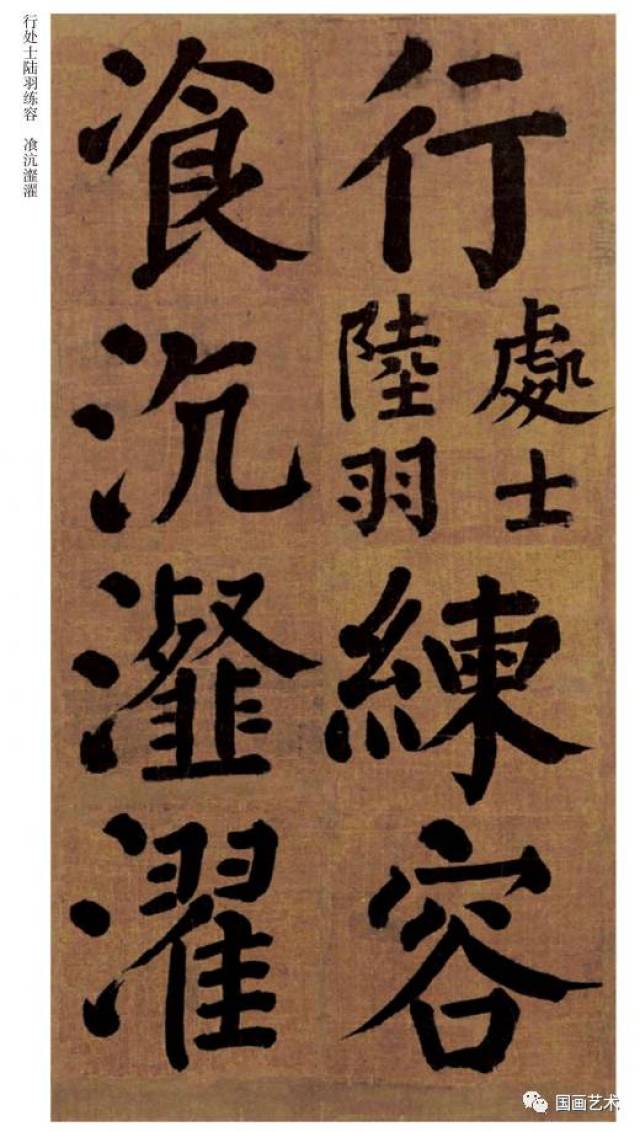 行處士陸羽練容
飡沆瀣濯
行处士陆羽练容 飡沆瀣濯
国画艺术